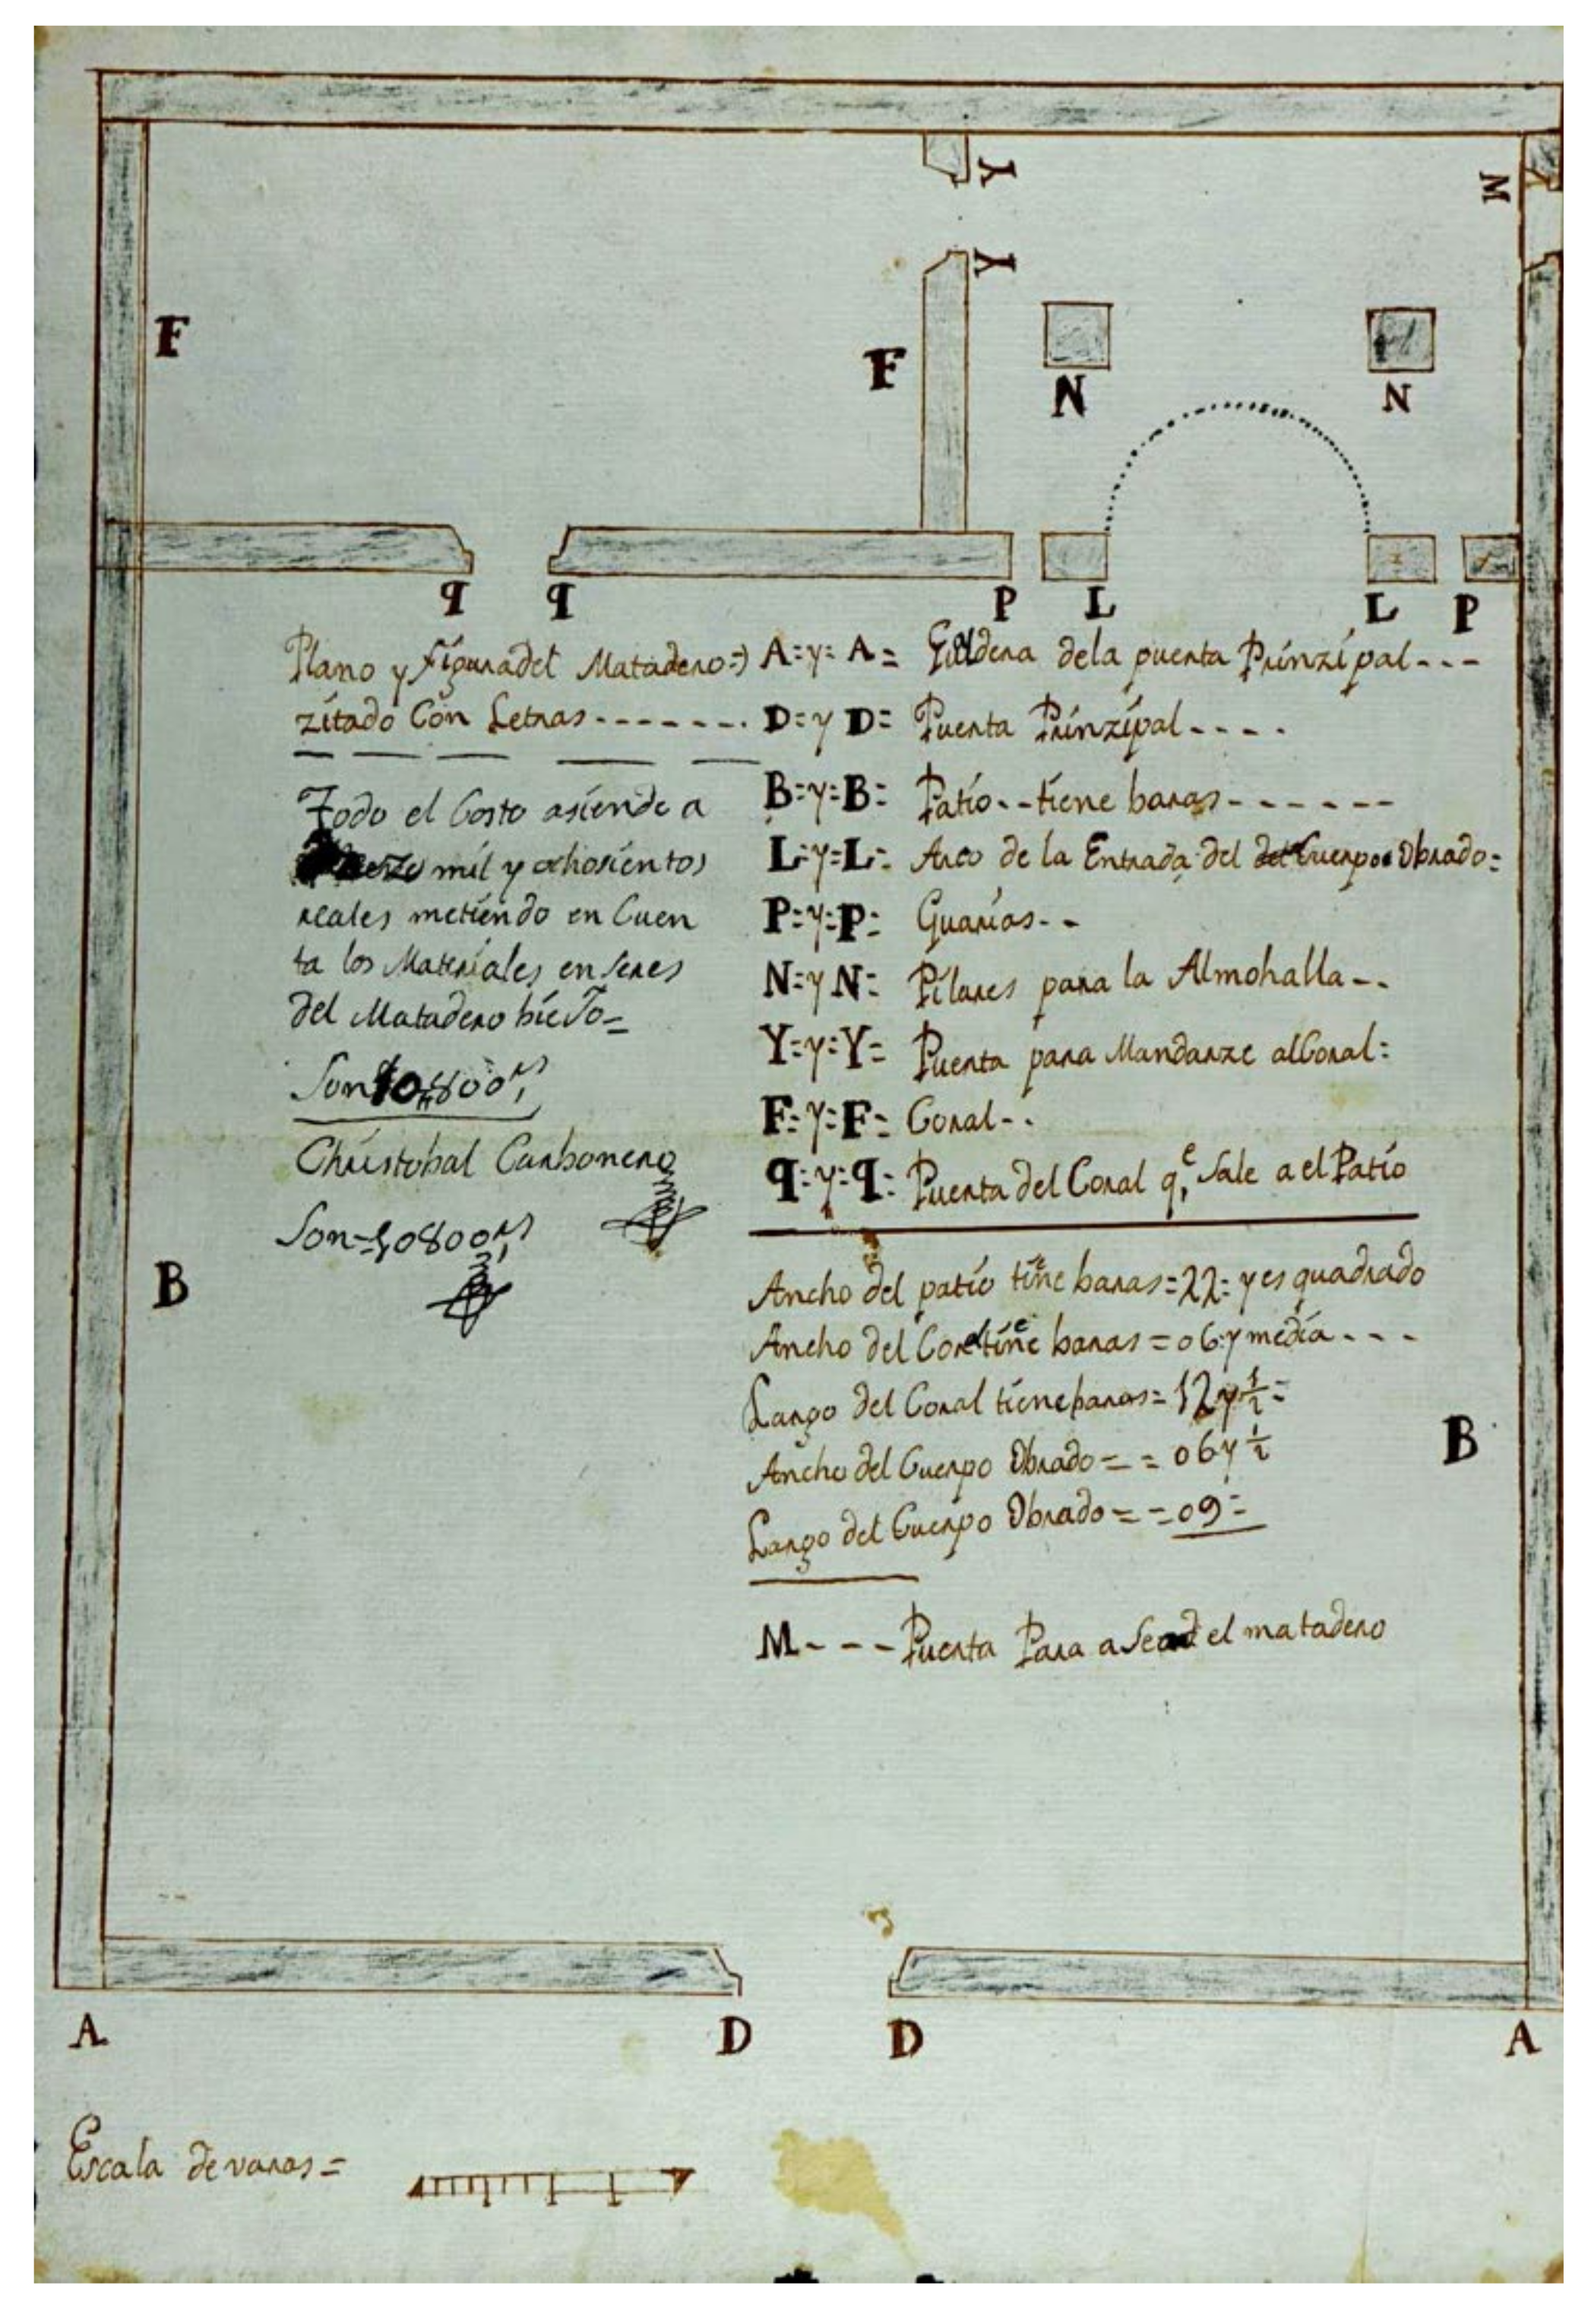 Y
M
Y
F
F
N
N
q
q
P
L
L
P
Plano y figura del Matadero =)
zitado Con Letras - - - - - - -
Todo el Costo asiende a
mil y ochosientos
reales metiendo en Cuen
ta los Materiales enseres
del Matadero bieJo =
Son 10,,800 rs
Christobal Carbonero
Son = 10800 rs
A = y = A = dela puerta Prinzipal - - -
D = y D = Puerta Prinzipal - - - -
B = y = B = Patio - - tiene baras - - - - - -
L = y = L = Arco de la Entrada del Cuerpo Obrado =
P = y = P = Guarias - -
N = y N = Pilares para la Almohalla - -
Y = y = Y = Puerta para Mandarze al Coral =
F = y = F = Coral - -
q = y = q = Puerta del Coral qe Sale a el Patio
Ancho del patio tiene baras = 22 = y es quadrado
Ancho del Coral tiene baras = 06 y media - - -
Largo del Coral tiene baras = 12 y 1/2 =
Ancho del Cuerpo Obrado = = 06 y 1/2
Largo del Cuerpo Obrado = = 09 =
M - - - Puerta Para asead el matadero
B
B
A
D
D
A
Escala de varas =